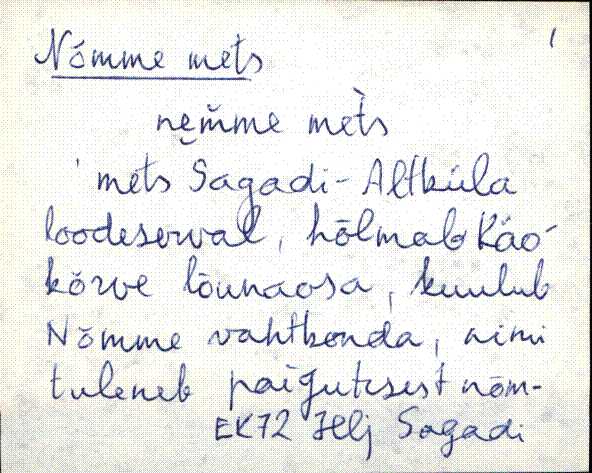 Nõmme mets 1
ne̮m̆me met̀s
mets Sagadi-Altküla
loodeserval, hõlmab Käo-
kõrve lõunaosa, kuulub
Nõmme vahtkonda, nimi
tuleneb paigutisest nõm-
EK72 Hlj Sagadi